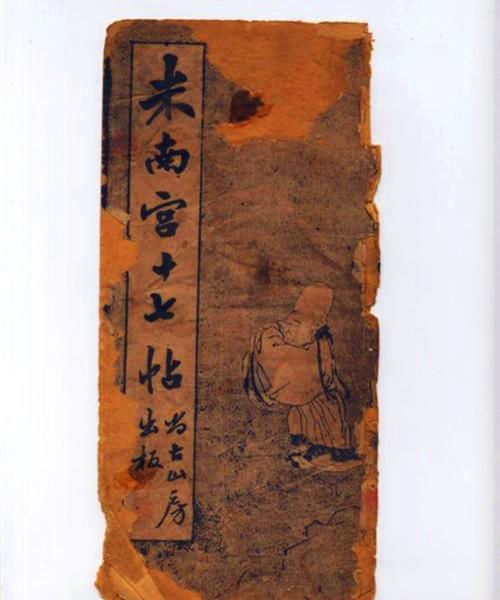 米南宮十七帖
尚古山房
出板